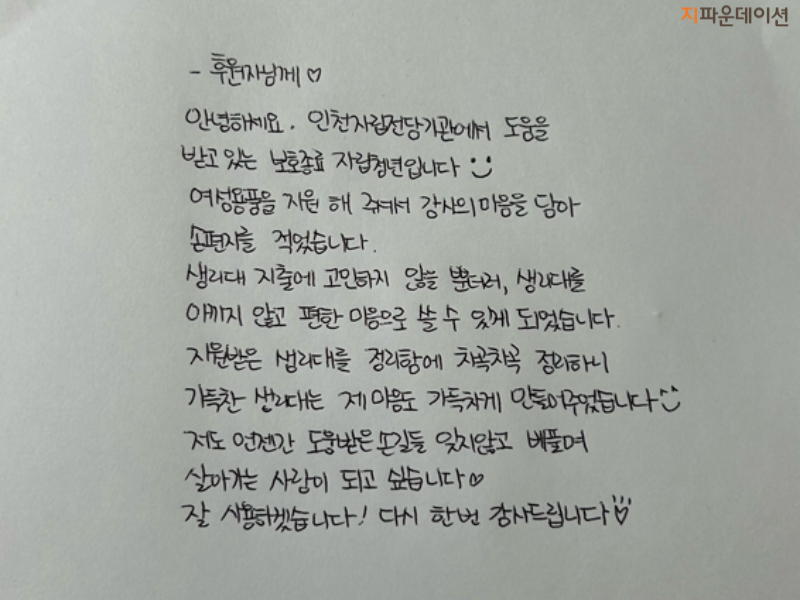 지파운데이션
- 후원자님께 ♡
안녕하세요. 인천자립전담기관에서 도움을
받고 있는 보호종료 자립청년입니다
여성용품을 지원 해 주셔서 감사의 마음을 담아
손편지를 적었습니다.
생리대 지출에 고민하지 않을 뿐더러, 생리대를
아끼지 않고 편한 마음으로 쓸 수 있게 되었습니다.
지원받은 생리대를 정리함에 차곡차곡 정리하니
가득찬 생리대는 제 마음도 가득차게 만들어주었습니다
저도 언젠간 도움받은 손길들 잊지않고 베풀며
살아가는 사람이 되고 싶습니다♡
잘 사용하겠습니다! 다시 한번 감사드립니다♡